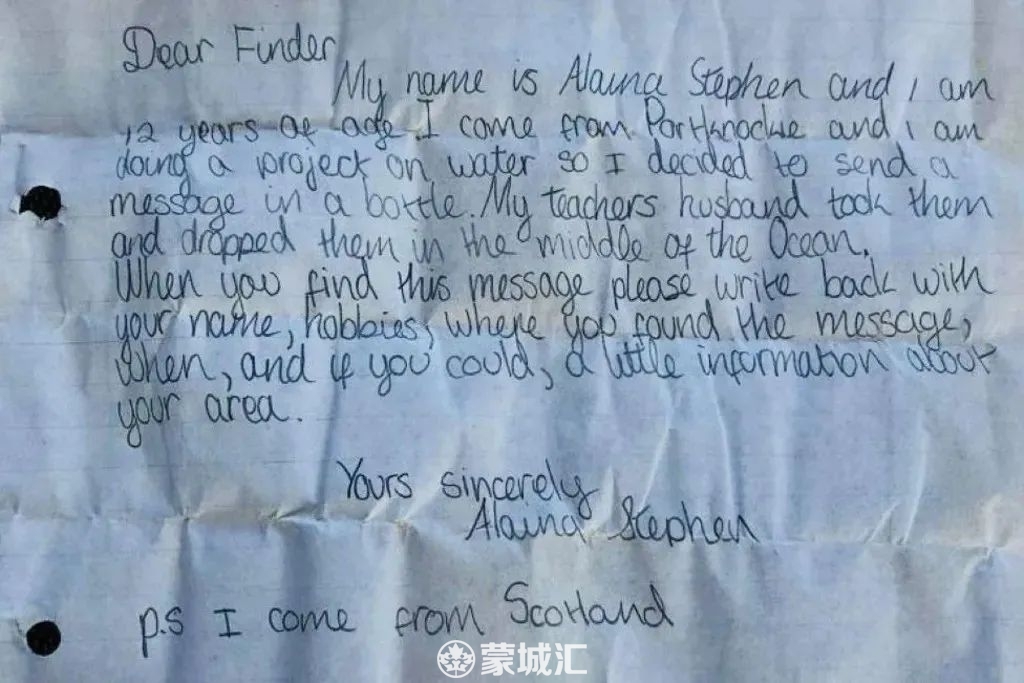 Dear Finder
My name is Alaina Stephen and I am
12 years of age I come from Portknockie and I am
doing a project on water so I decided to send a
message in a bottle. My teachers husband took them
and dropped them in the middle of the Ocean.
When you find this message please write back with
your name, hobbies, where you found the message,
when, and if you could, a little information about
your area.
Yours sincerely
Alaina Stephen
p.s I come from Scotland
蒙城汇